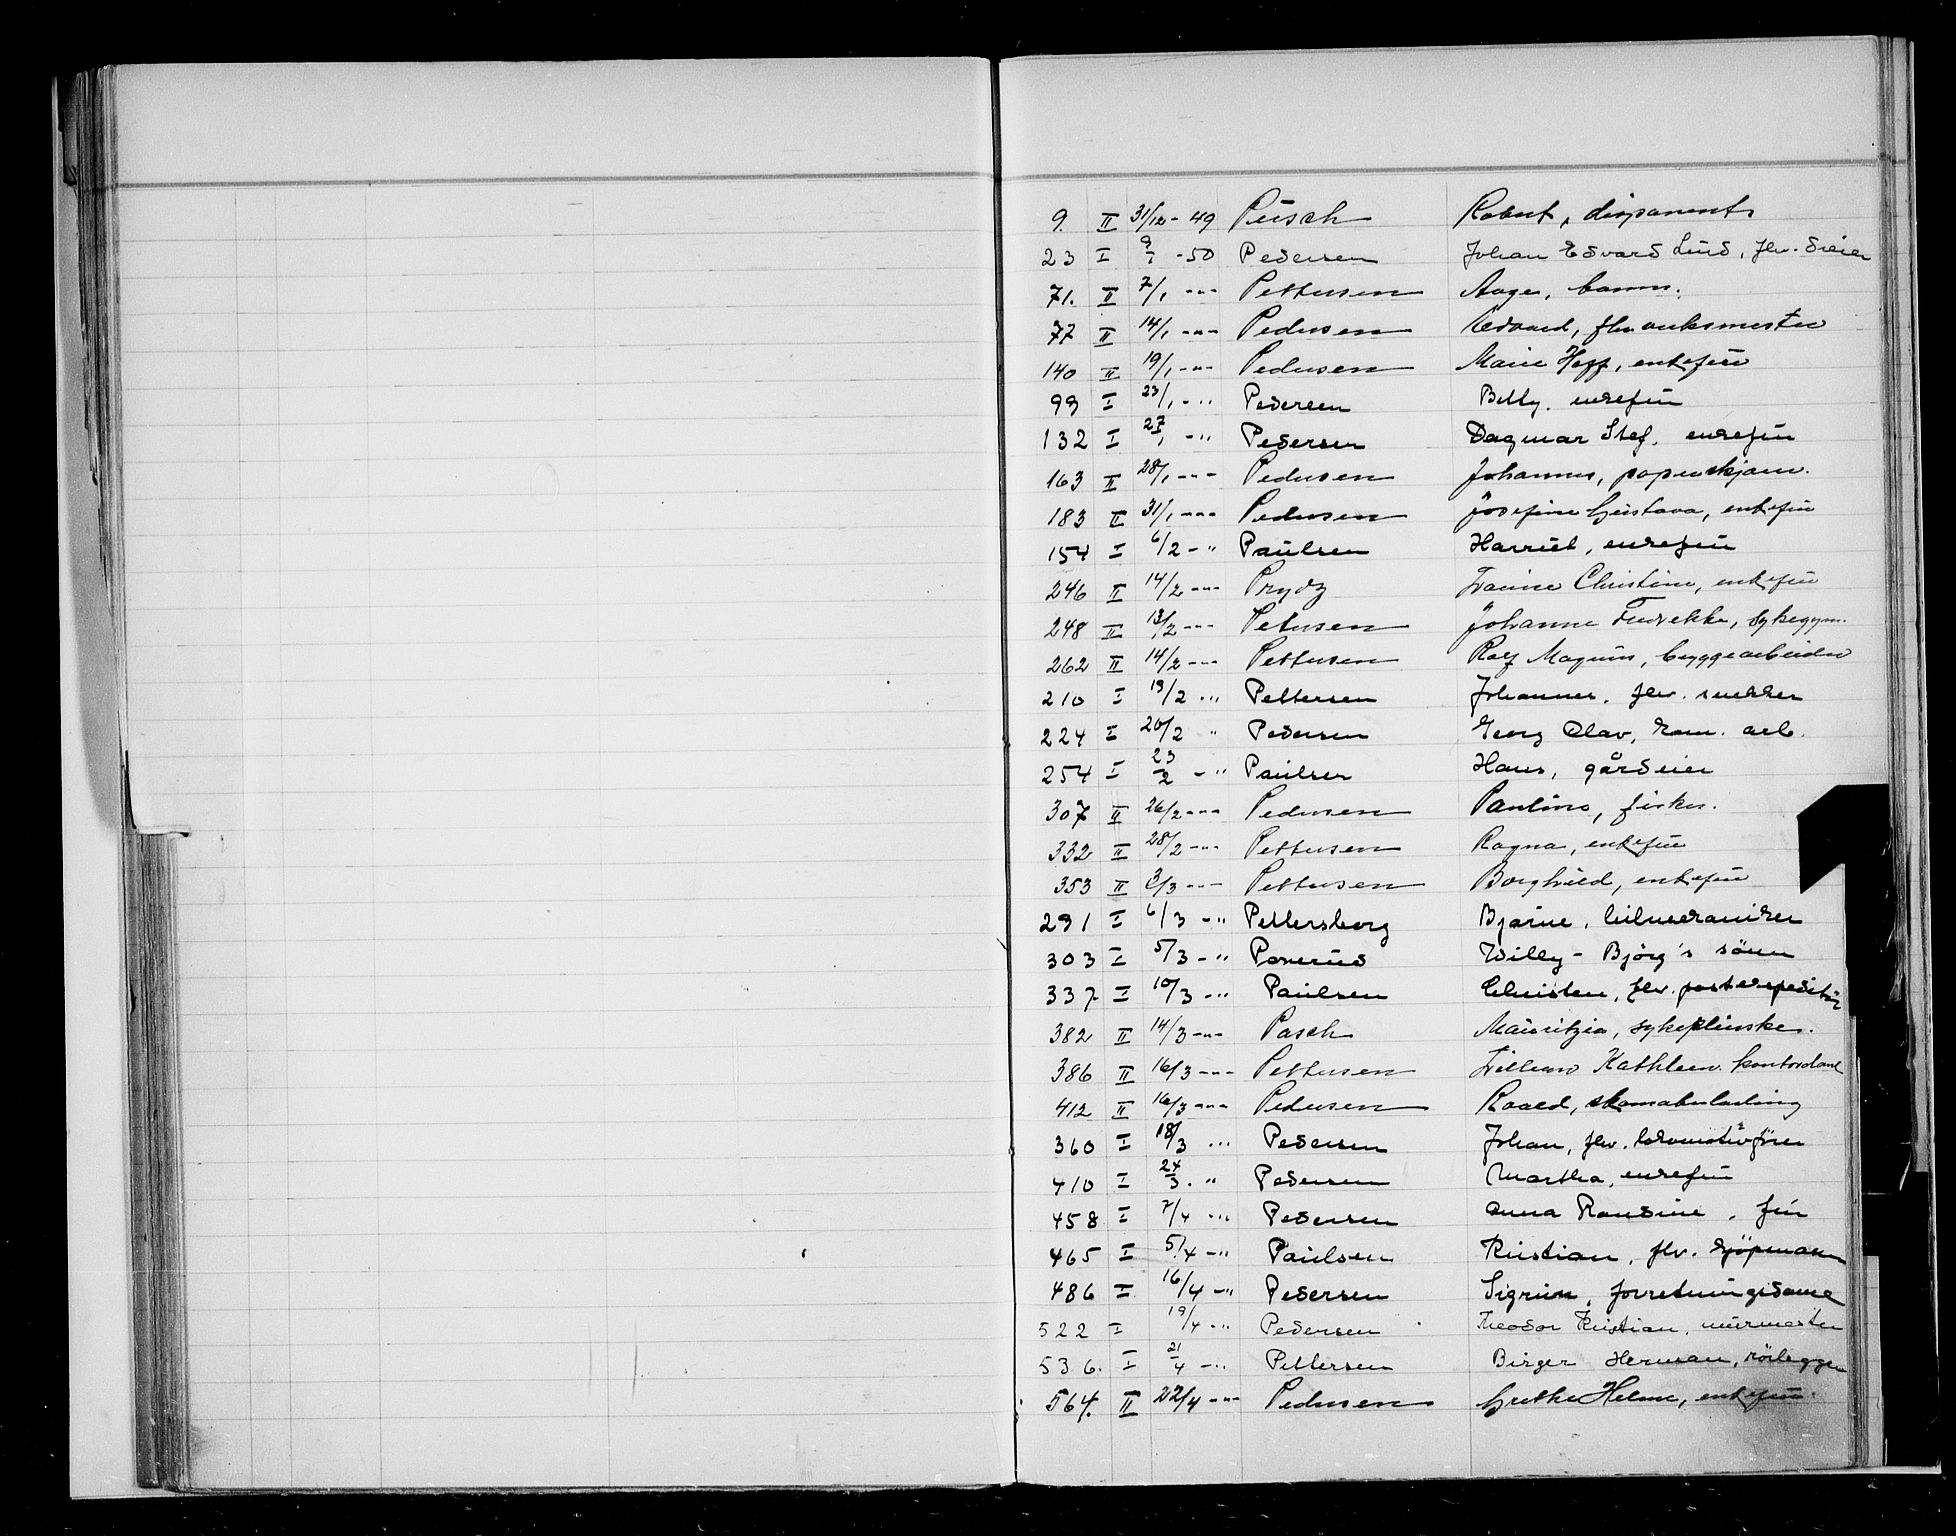 9. II 31/12 - 49 Pusch Robert, disponent
23 I 9/1 - 50 Pedersen Johan Edvard Lund, fhv. dreier
71. II 7/1 -"- Pettersen Aage, barn
77 II 14/1 -"- Pedersen Edvard, fhv. verksmester
140 II 19/1 -"- Pedersen Marie Hoff, enkefru
99 I 23/1 - " Pedersen Betty. enkefru
132 I 27/1 - " Pedersen Dagmar Stef. enkefru
163 II 28/1 -"- Pedersen Johannes,
183 II 31/1 -"- Pedersen Josefine Gustava, enkefru
154 I 6/2 - " Paulsen Harriet, enkefru
246 II 14/2 -"- Prydz Christine, enkefru
248 II 13/2 -"- Petersen Johanne Fredrikke, sykegym.
262 II 14/2 -"- Pettersen Rolf Magnus, byggearbeider
210 I 19/2 - " Pettersen Johannes. fhv. snekker
224 I 20/2 " Pedersen Georg Olav, kom. arb.
254 I 23/2 - " Paulsen Hans, gårdeier
307 II 26/2 -"- Pedersen Paulino, fisker.
332 II 28/2 -"- Pettersen Ragna, enkefru
353 II 3/3 -"- Pettersen Borghild, enkefru
291 I 6/3 - " Pettersborg Bjarne, bilmekaniker
303 I 5/3 - " Poverud Willy - Bjørg's sønn
337 I 10/3 - " Paulsen Christen, fhv. postekspeditør
382 II 14/3 -"- Pasch Mauritzia, sykepleierske.
386 II 16/3 -"- Pettersen Lillian Kathleen. kontordame
412 II 16/3 -"- Pedersen Roald,
360 I 18/3 - " Pedersen Johan, fhv. lokomotivfører
410 I 24/3. " Pedersen Martha, enkefru
458 I 7/4 - " Pedersen Anna Randine, fru
465 I 5/4 - " Paulsen Kristian, fhv. kjøpmann
486 I 16/4 - " Pedersen Sigrun, forretningsdame
522 I 19/4 - " Pedersen Theodor Kristian, murmester
536. I 21/4 - " Pettersen Birger Herman, rørlegger
564. II 22/4 -"- Pedersen Grethe Helene, enkefru.